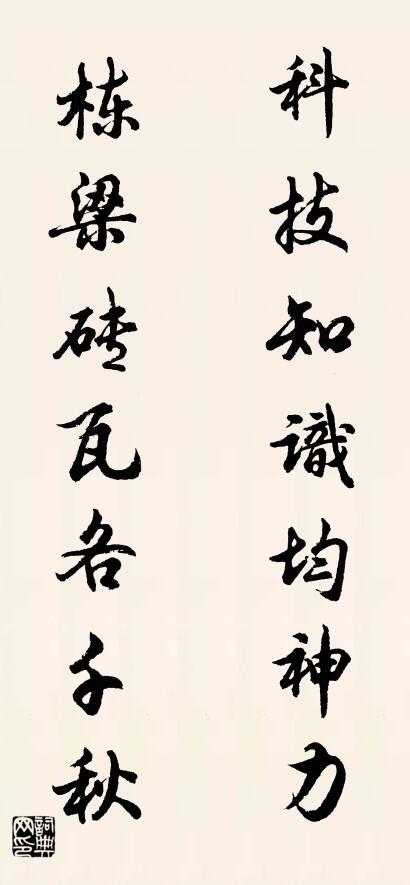 科技知識均神力
栋梁砖瓦各千秋
詞典
网印